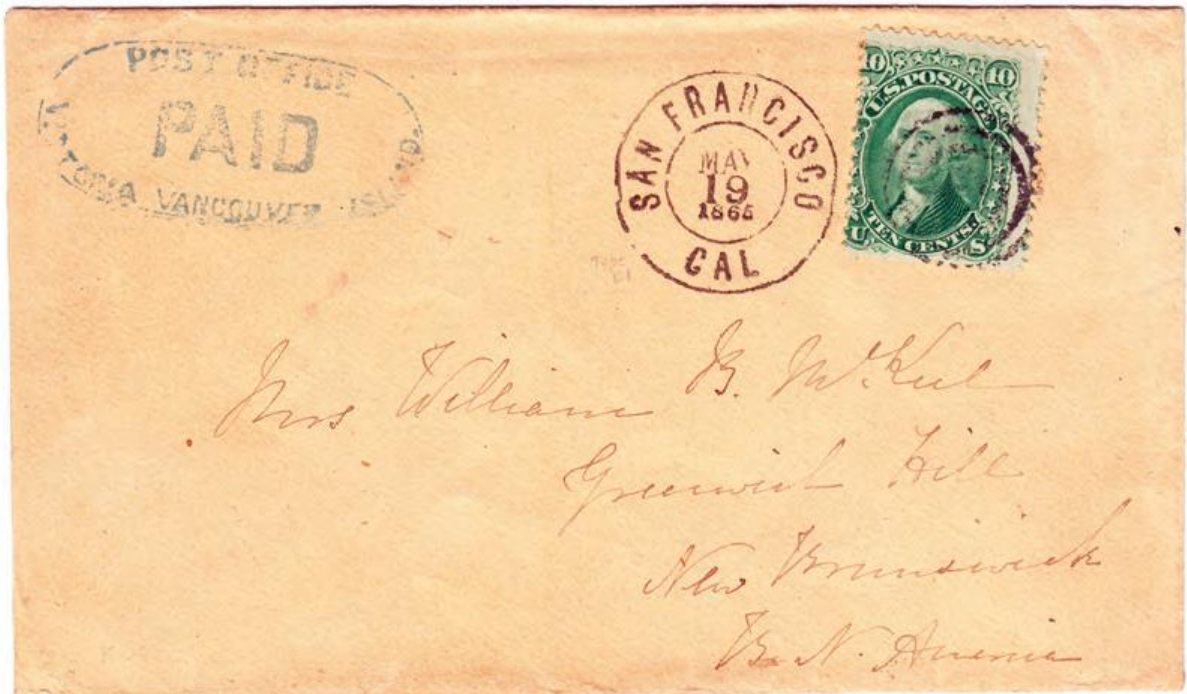 POST OFFICE
PAID
VICTORIA VANCOUVER ISLAND.
SAN FRANCISCO
MAY
19
1865
CAL
10 10
U.S. POSTAGE
TEN CENTS.
U S
Mrs William B.
Greenwich Hill
New Brunswick
B. N. America